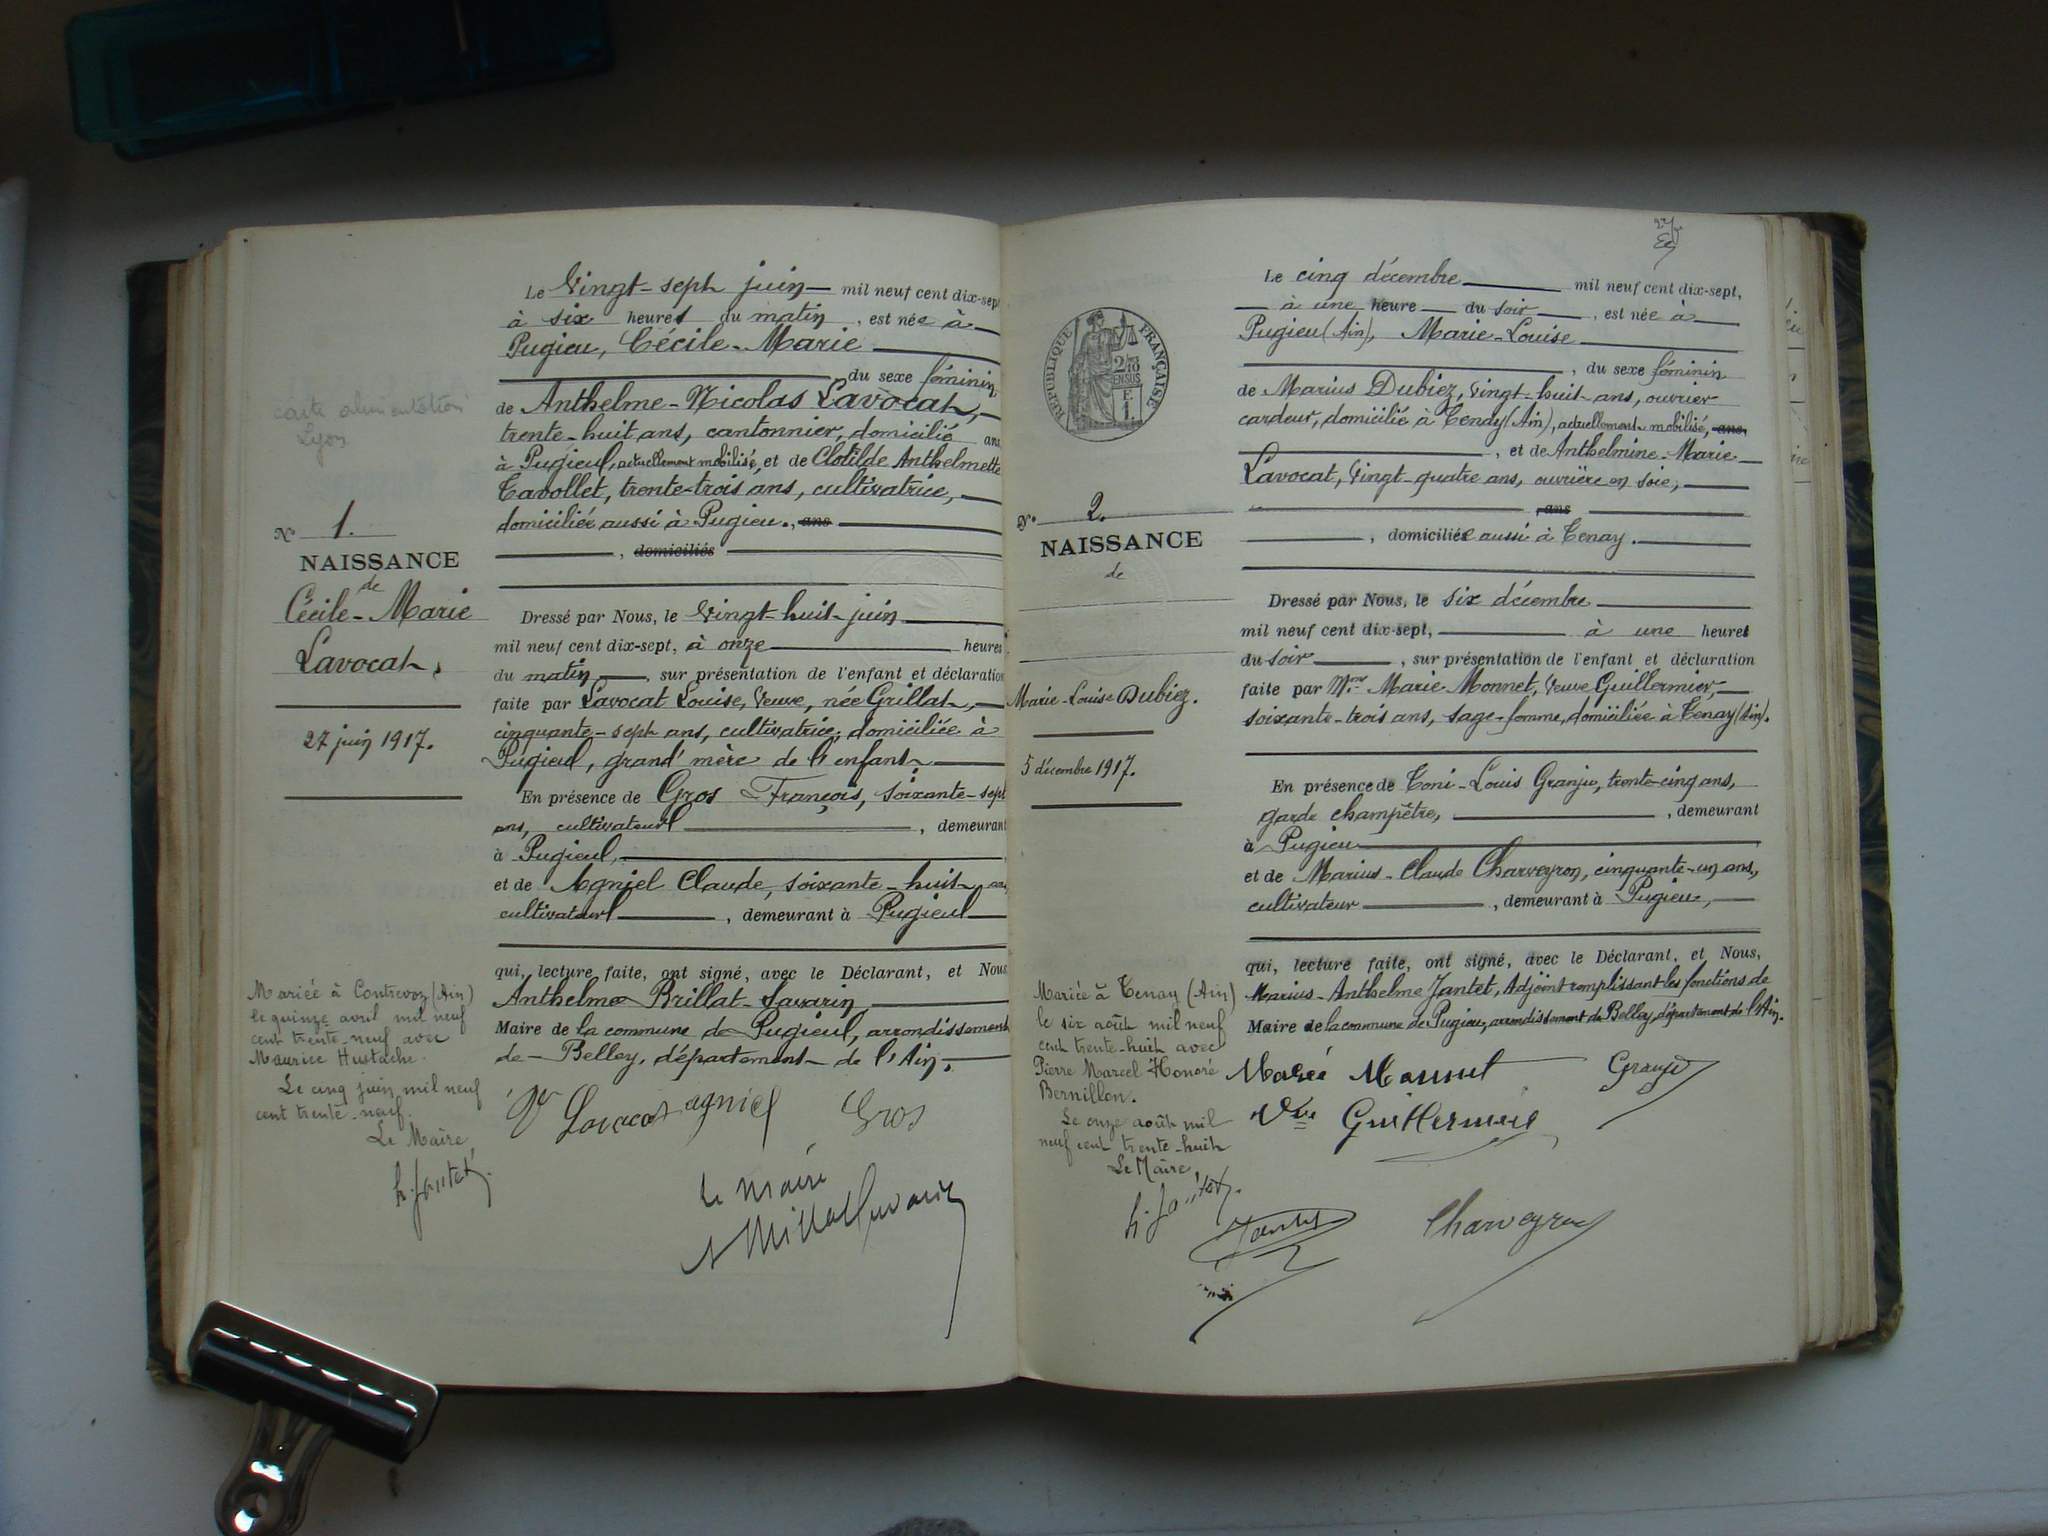 carte alimentation
Lyon
N° 1.
NAISSANCE
de
Cécile-Marie
Lavocat,
27 juin 1917.
Mariée à Contrevoz (Ain)
le quinze avril mil neuf
cent trente-neuf avec
Maurice Hustache.
Le cinq juin mil neuf
cent trente-neuf.
Le Maire
h. Jantet
Le Vingt-sept juin mil neuf cent dix-sept
à six heures du matin, est née à
Pugieu, Cécile-Marie
, du sexe féminin,
de Anthelme-Nicolas Lavocat,
trente-huit ans, cantonnier, domicilié ans
à Pugieu, actuellement mobilisé, et de Clotilde Anthelmette
Tavollet, trente-trois ans, cultivatrice,
domiciliée aussi à Pugieu., ans
, domiciliés
Dressé par Nous, le Vingt-huit-juin
mil neuf cent dix-sept, à onze heures
du matin, sur présentation de l'enfant et déclaration
faite par Lavocat Louise, Veuve, née Grillat,
cinquante-sept ans, cultivatrice, domiciliée à
Pugieu, grand'mère de l'enfant
En présence de Gros François, soixante-sept
ans, cultivateur, demeurant
à Pugieu,
et de Agniel Claude, soixante-huit ans
cultivateur, demeurant à Pugieu
qui, lecture faite, ont signé, avec le Déclarant, et Nous
Anthelme Brillat-Savarin
Maire de la commune de Pugieu, arrondissement
de Belley, département de l'Ain.
Vve Lavocat agniel Gros
Le maire
A Brillat Savarin
RÉPUBLIQUE FRANÇAISE
N° 2.
NAISSANCE
de
Marie-Louise Dubiez.
5 décembre 1917.
Mariée à Tenay (Ain)
le six août mil neuf
cent trente-huit avec
Pierre Marcel Honoré
Bernillon.
Le onze août mil
neuf cent trente-huit
Le Maire,
h. Jantet.
Le cinq décembre mil neuf cent dix-sept,
à une heure du soir, est née à
Pugieu (Ain), Marie-Louise
, du sexe féminin
de Marius Dubiez, vingt-huit-ans, ouvrier
cardeur, domicilié à Tenay (Ain), actuellement mobilisé, ans
, et de Anthelmine-Marie
Lavocat, vingt-quatre ans, ouvrière en soie,
, ans
, domiciliée aussi à Tenay.
Dressé par Nous, le six décembre
mil neuf cent dix-sept, à une heure
du soir, sur présentation de l'enfant et déclaration
faite par Mme Marie Monnet, Veuve Guillermier,
soixante-trois ans, sage-femme, domiciliée à Tenay (Ain).
En présence de Toni-Louis Granju, trente-cinq ans,
garde champêtre, demeurant
à Pugieu
et de Marius-Claude Charveyron, cinquante-un ans,
cultivateur, demeurant à Pugieu,
qui, lecture faite, ont signé, avec le Déclarant, et Nous,
Marius-Anthelme Jantet, Adjoint remplissant les fonctions de
Maire de la commune de Pugieu, arrondissement de Belley, département de l'Ain.
Marie Monnet Granju
Vve Guillermier
Jantet Charveyron